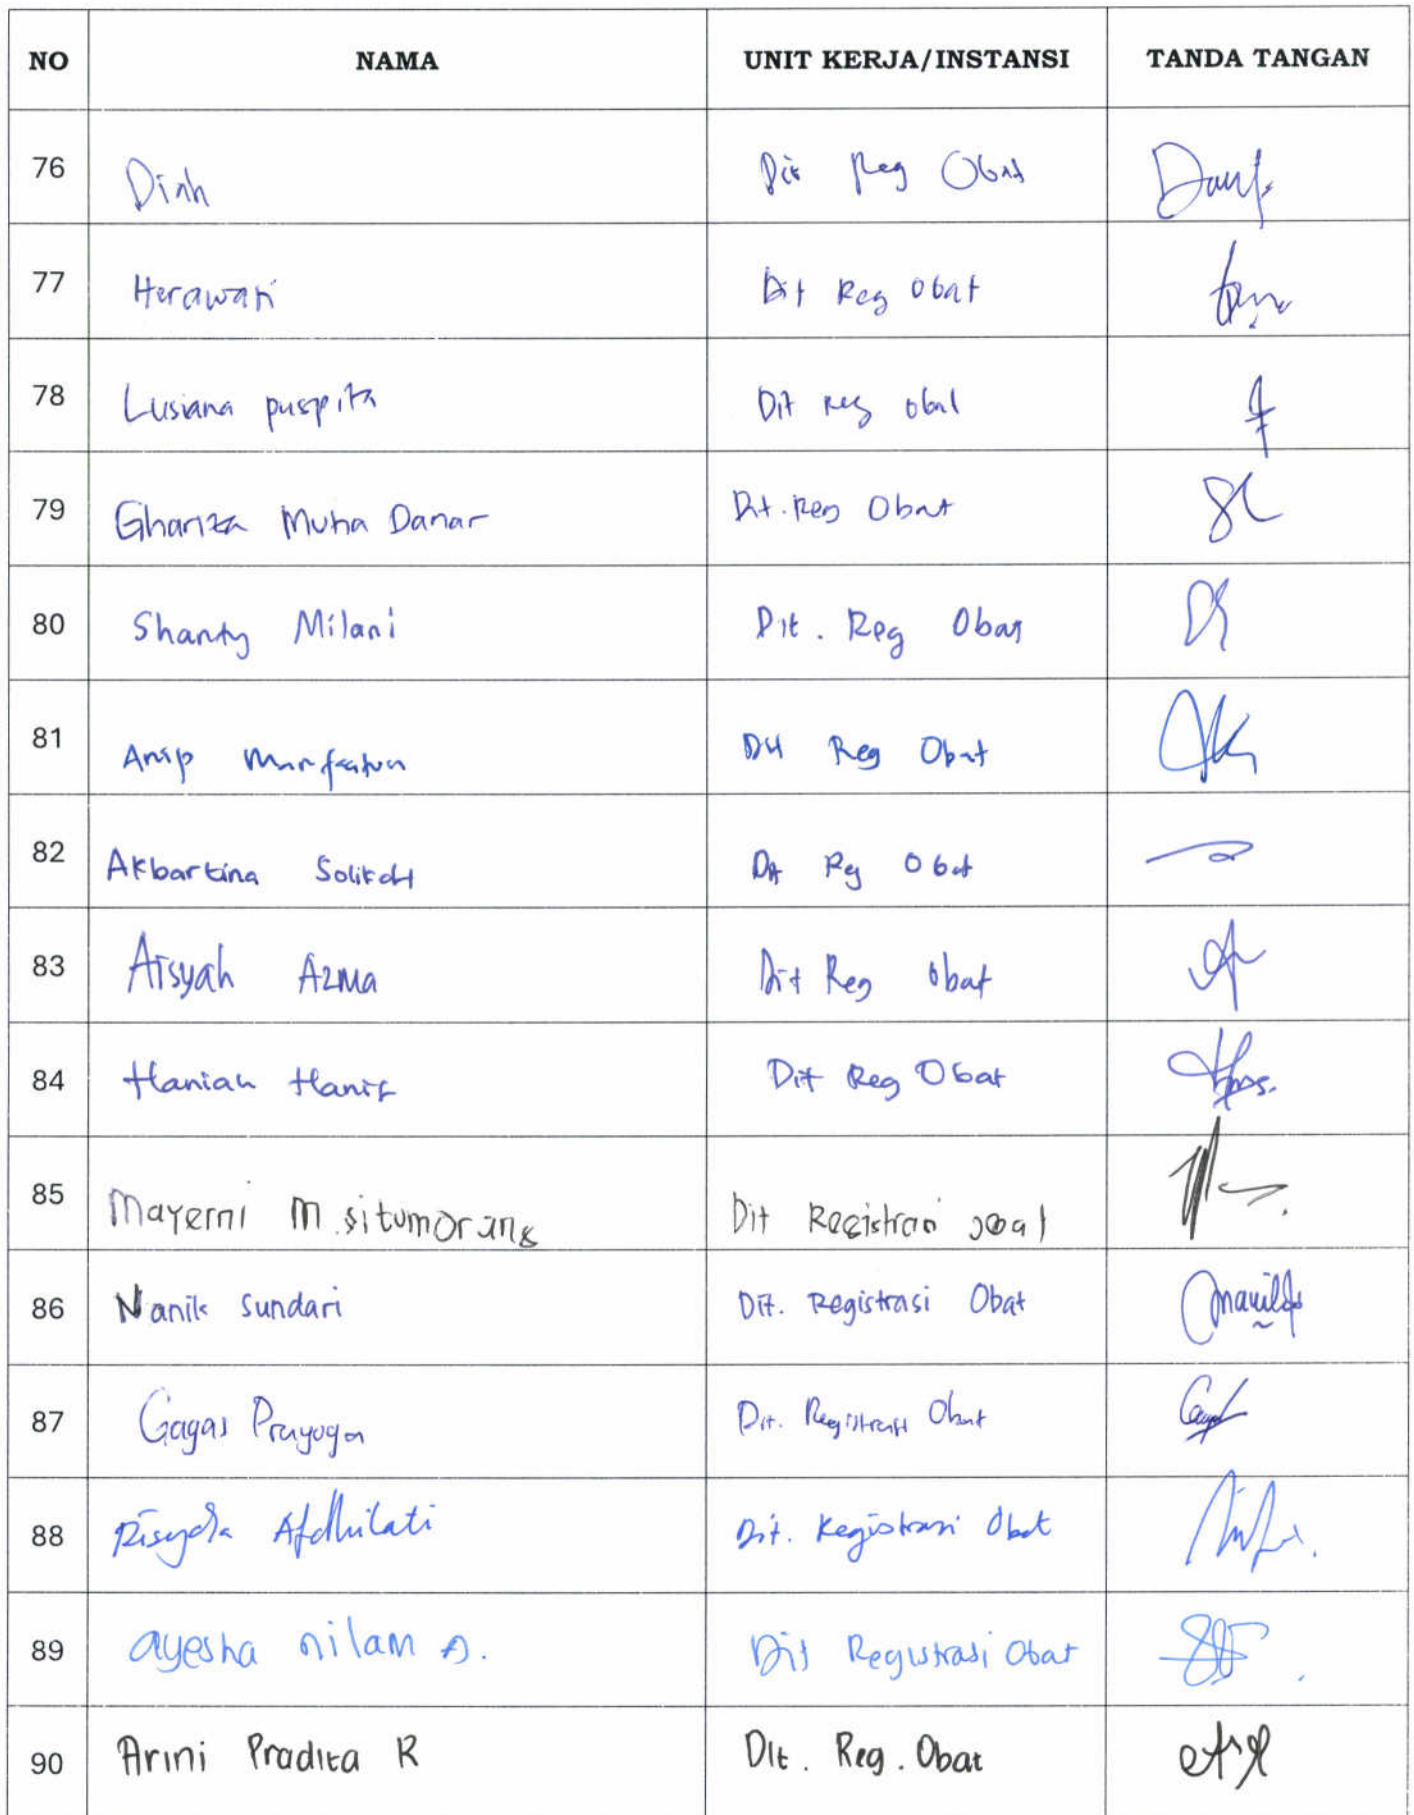 NO NAMA UNIT KERJA/INSTANSI TANDA TANGAN
76 Dinh Dit Reg Obat
77 Herawati Dit Reg Obat
78 Lusiana puspita Dit reg obat
79 Ghariza Muha Danar Dit. Reg Obat
80 Shanty Milani Dit. Reg Obat
81 Dit Reg Obat
82 Akbartina Dit Reg Obat
83 Aisyah Azma Dit Reg obat
84 Haniah Hanif Dit Reg Obat
85 Mayerni M. situmorang Dit Registrasi
86 Nanik Sundari Dit. Registrasi Obat
87 Gagas Prayoga Dit. Registrasi Obat
88 Afdhilati Dit. Registrasi Obat
89 ayesha nilam Dit Registrasi Obat
90 Arini Pradita R Dit. Reg. Obat